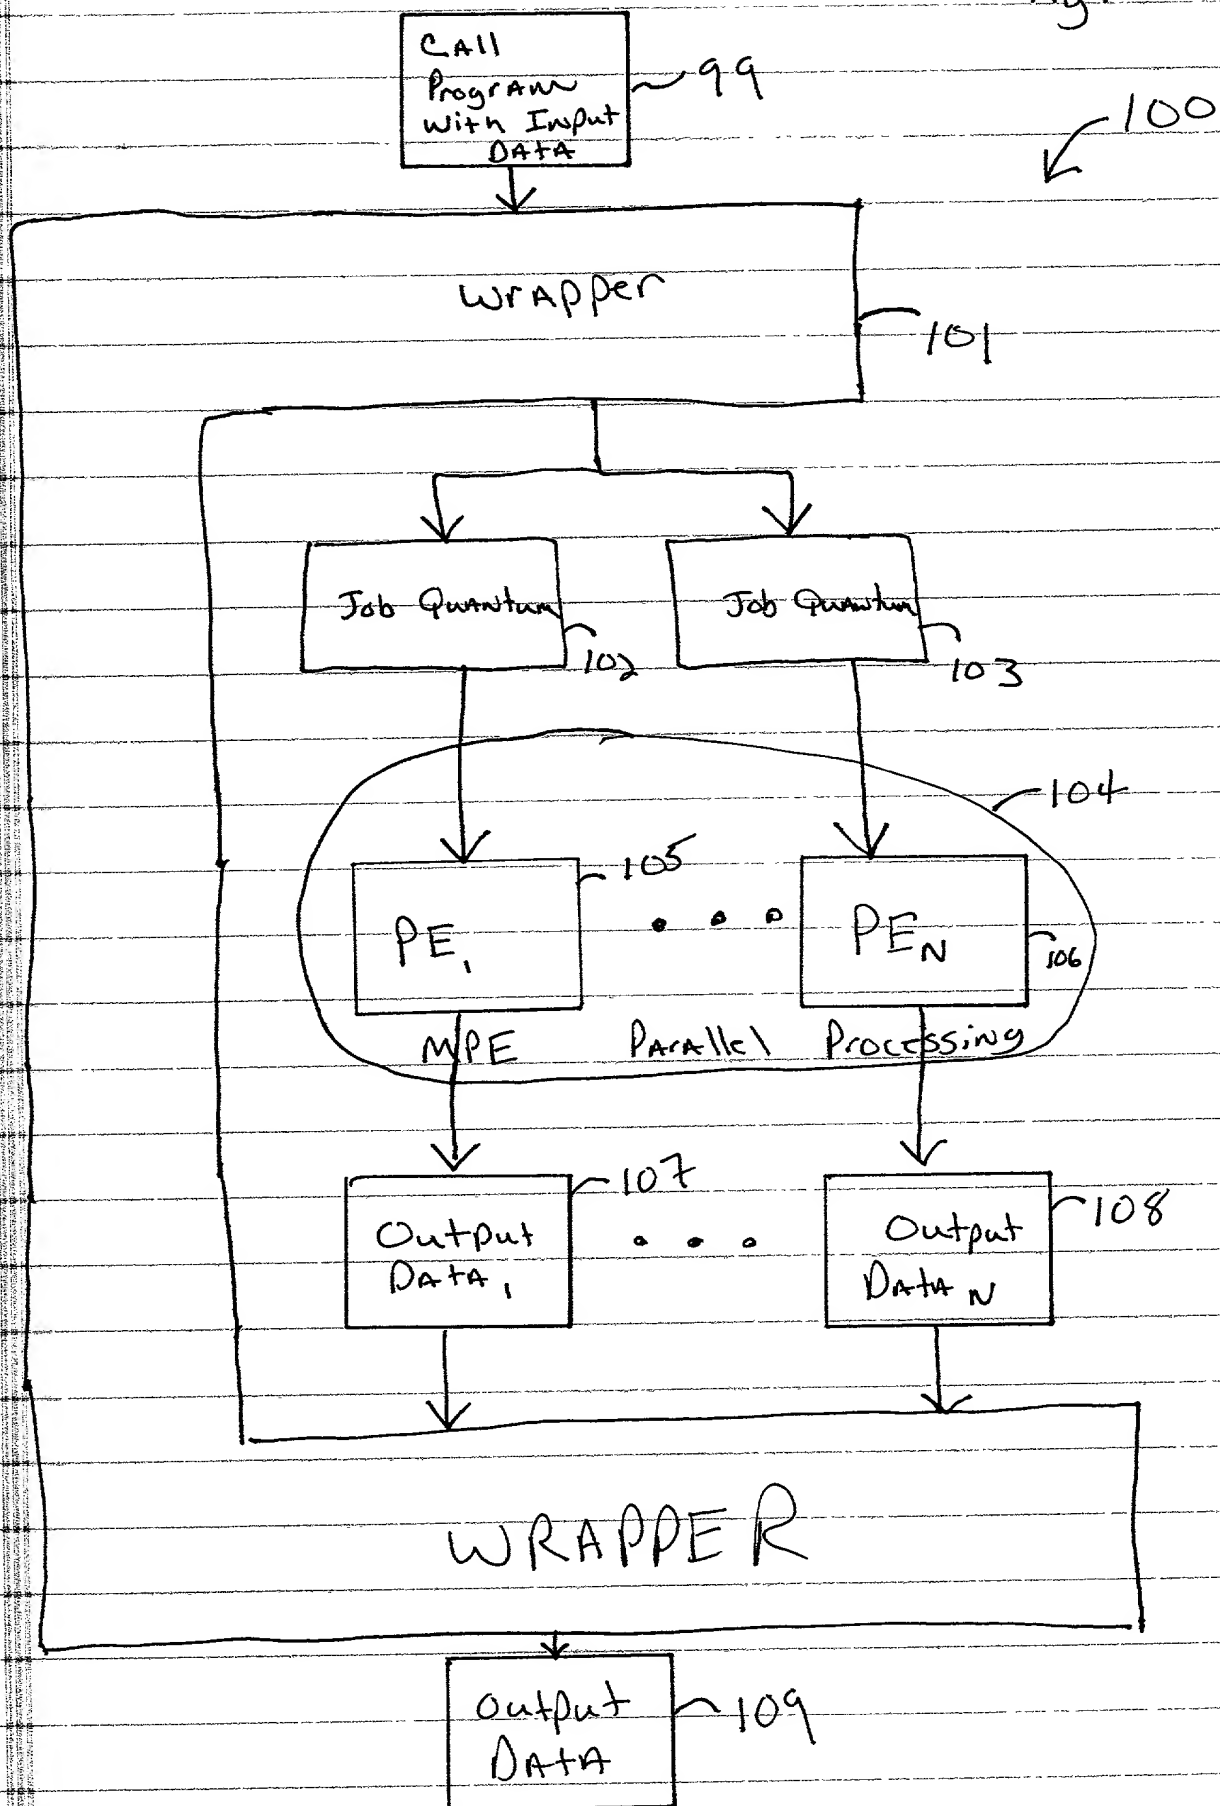 CAll
Program
with Input
DATA
99
100
Wrapper
101
Job Quantum
102
Job Quantum
103
104
105
PE1
PEN
106
MPE Parallel Processing
107
108
Output
DATA1
Output
DATA N
WRAPPER
Output
DATA
109